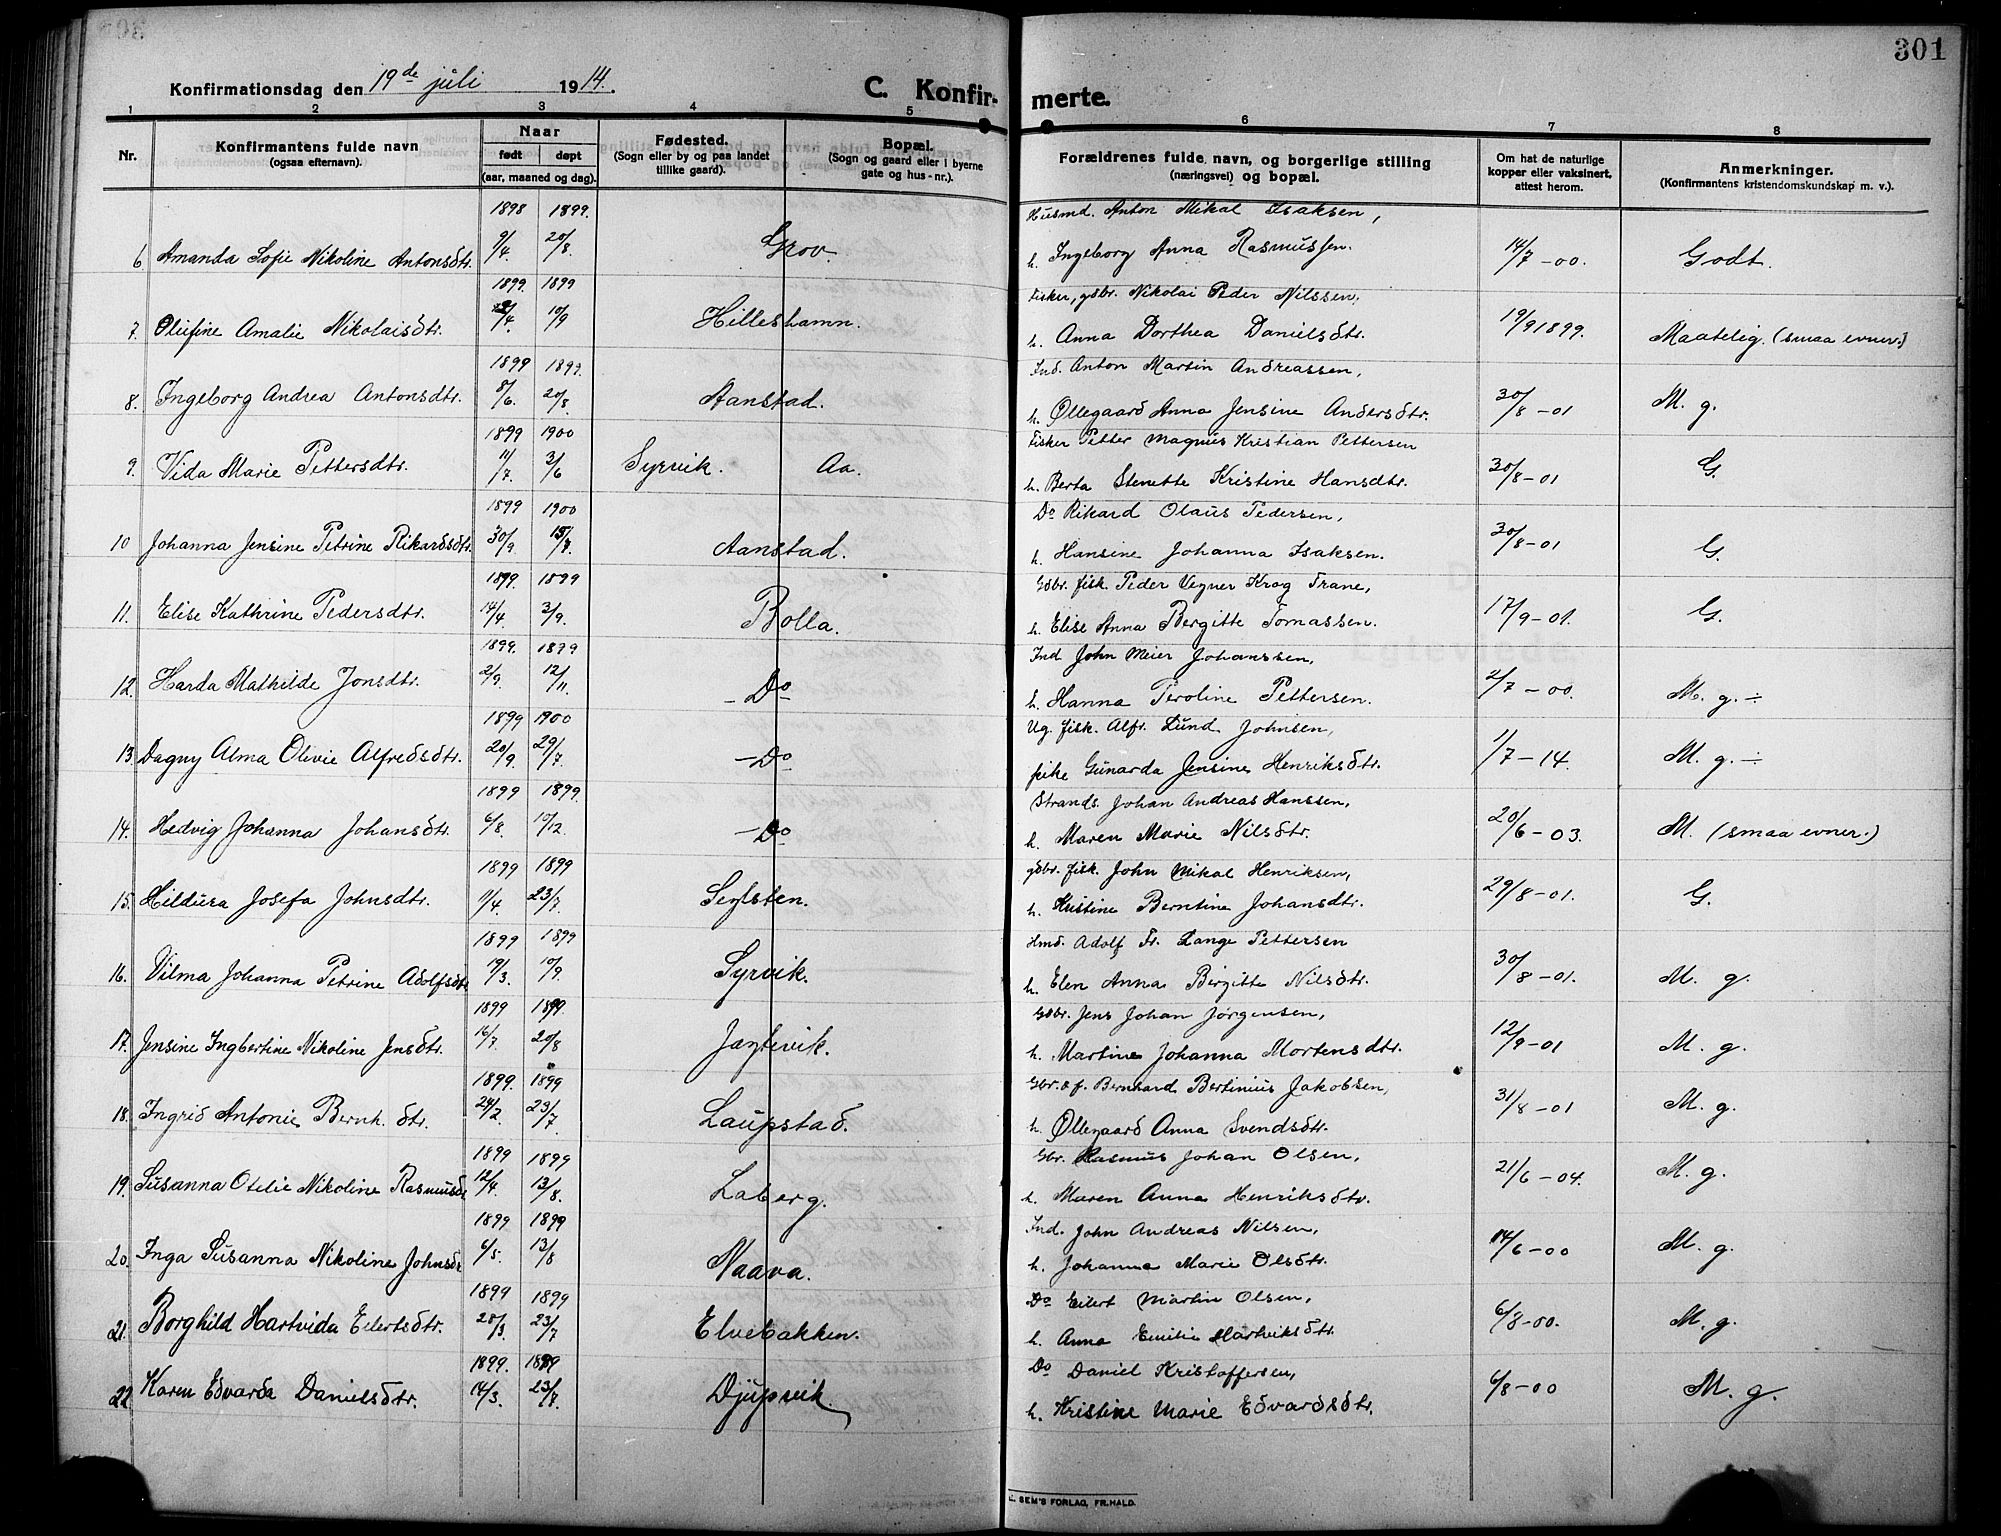 301
Konfirmationsdag den 19de juli 1914.
C. Konfirmerte.
1 2 3 4 5 6 7 8
Nr.
Konfirmantens fulde navn
(ogsaa efternavn).
Naar
født døpt
(aar, maaned og dag).
Fødested.
(Sogn eller by og paa landet
tillike gaard).
Bopæl.
(Sogn og gaard eller i byerne
gate og hus-nr.).
Forældrenes fulde navn, og borgerlige stilling
(næringsvei) og bopæl.
Om hat de naturlige
kopper eller vaksinert,
attest herom.
Anmerkninger.
(Konfirmantens kristendomskundskap m. v.).
1898 1899. Husmd. Anton Mikal Isaksen,
6 Amanda Sofie Nikoline Antonsdtr. 9/4 20/8 Grov. h. Ingeborg Anna Rasmussen. 14/7-00. Godt.
1899. 1899 Fisker, gdbr. Nikolai Peder Nilssen,
7. Olufine Amalie Nikolaisdtr. /4 10/9 Hilleshamn. h. Anna Dorthea Danielsdtr. 19/9 1899. Maatelig. (smaa evner.)
1899 1899. Ind. Anton Martin Andreassen,
8. Ingeborg Andrea Antonsdtr. 8/6. 20/8 Aanstad. h. Øllegaard Anna Jensine Andersdtr. 30/8-01 M. g.
1899 1900 Fisker Petter Magnus Kristian Pettersen
9. Vida Marie Pettersdtr. 11/7 3/6 Syrvik. Aa. h. Berta Stenette Kristine Hansdtr. 30/8-01 G.
1899 1900 Do Rikard Olaus Pedersen,
10 Johanna Jensine Petrine Rikardsdtr. 30/9. 15/7. Aanstad. h. Hansine Johanna Isaksen. 30/8-01 G.
1899. 1899 Gdbr. fisk. Peder Vegner Krog Trane,
11. Elise Kathrine Pedersdtr. 14/4 3/9. Bolla. h. Elise Anna Bergitte Tomassen. 17/9-01. G.
1899. 1899 Ind John Meier Johanssen,
12. Harda Mathilde Jonsdtr. 2/9. 12/11. - Do h. Hanna Peroline Pettersen. 2/7-00. M. g. ÷
1899 1900 Ug. fisk. Alfr. Lund Johnsen,
13. Dagny Alma Olivie Alfredsdtr. 20/9 29/7. - Do pike Gunarda Jensine Henriksdtr. 1/7-14. M. g. ÷
1899 1899. Strands. Johan Andreas Hanssen,
14. Hedvig Johanna Johansdtr. 6/8. 10/12. - Do h. Maren Marie Nilsdtr. 20/6-03. M. (smaa evner.)
1899 1899 gdbr. fisk. John Mikal Henriksen,
15. Hildura Josefa Johnsdtr. 11/4. 23/7 Seylsten. h. Kristine Berntine Johansdtr. 29/8-01. G.
1899 1899 Hmd. Adolf Fr. Lange Pettersen
16. Vilma Johanna Petrine Adolfsdtr 19/3. 10/9. Syrvik. h. Elen Anna Birgitte Nilsdtr. 30/8-01. M. g.
1899 1899. Gdbr. Jens Johan Jørgensen,
17. Jensine Ingbertine Nikoline Jensdtr. 16/7. 20/8 h. Martine Johanna Mortensdtr. 12/9-01 M. g.
1899. 1899 Gbr. & f. Bernhard Bertinius Jakobsen,
18. Ingrid Antonie Bernh. dtr. 24/2. 23/7. Laupstad. h. Øllegaard Anna Svendsdtr. 31/8-01 M. g.
1899 1899 Gbr. Rasmus Johan Olsen,
19. Susanna Otelie Nikoline Rasmusdr 12/4. 13/8. Laberg. h. Maren Anna Henriksdtr. 21/6-04. M. g.
1899 1899 Ind. John Andreas Nilsen,
20. Inga Susanna Nikoline Johnsdr 6/5. 13/8 Naava. h. Johanna Marie Olsdtr. 14/6-00 M. g.
1899 1899 Do Eilert Martin Olsen,
21. Borghild Hartvida Eilertsdtr. 28/3. 23/7 Elvebakken. h. Anna Emilie Hartviksdtr. 6/8-00. M. g.
1899. 1899 Do Daniel Kristoffersen,
22 Karen Edvarda Danielsdtr. 14/3. 23/7. Djupvik. h. Kristine Marie Edvardsdtr. 6/8-00 M. g.
SEM'S FORLAG, FR.HALD.